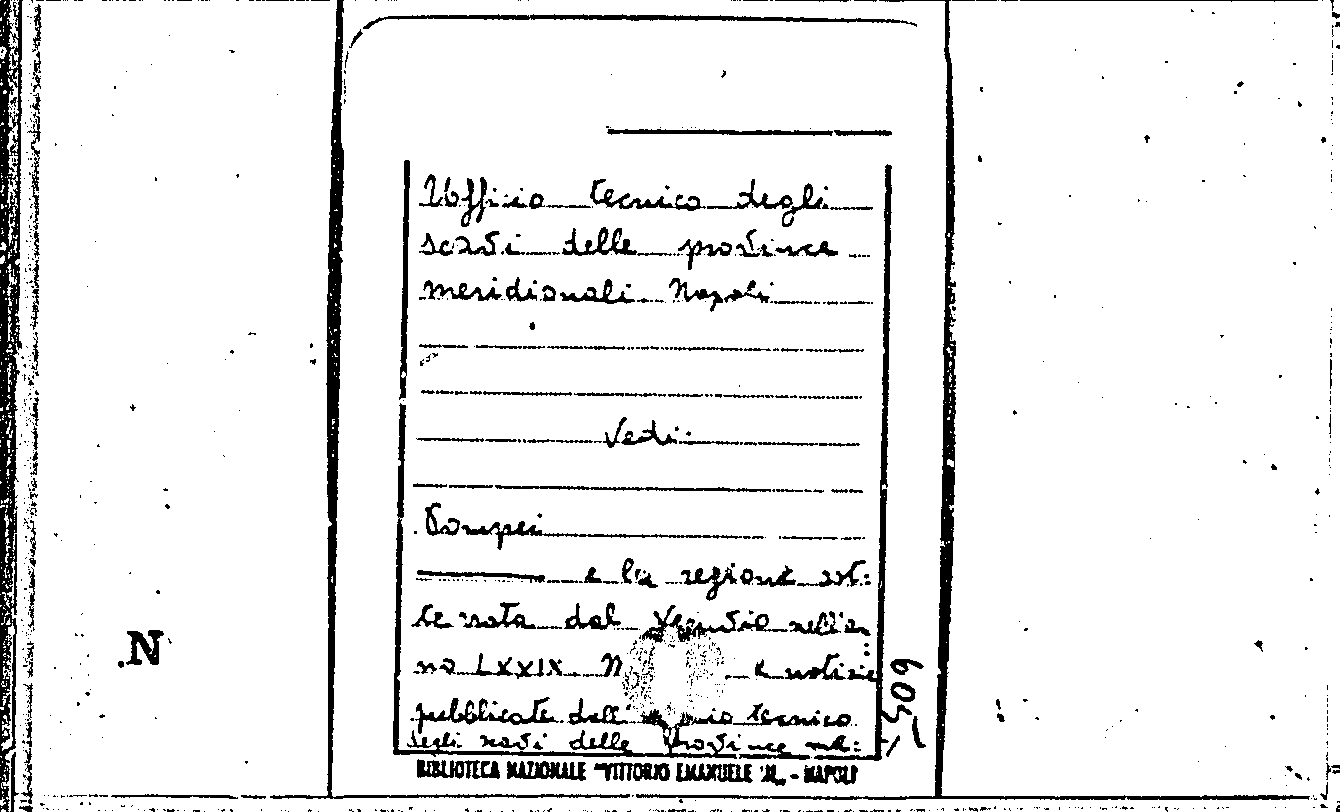 Ufficio tecnico degli
scavi delle province
meridionali. Napoli
Vedi:
Pompei
e la regione sot:
terrata dal Vesuvio nell'an
no LXXIX. e notizie
pubblicate dall' tecnico
degli scavi delle province
BIBLIOTECA NAZIONALE "VITTORIO EMANUELE III„ - NAPOLI
N.